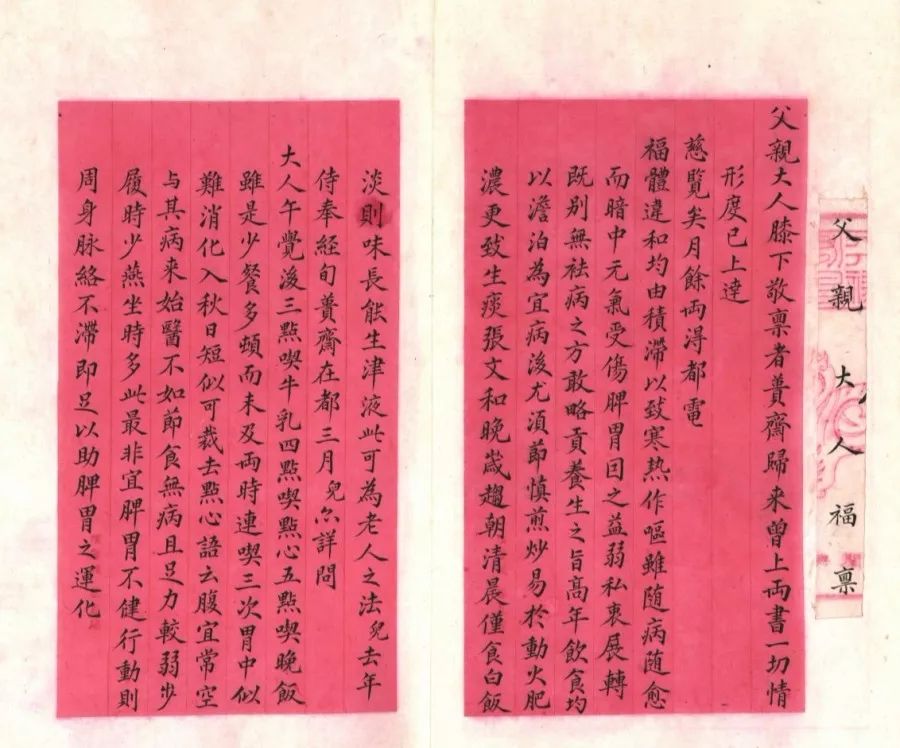 父親大人福稟
父親大人膝下敬稟者蕢齋歸来曾上両書一切情
形度已上達
慈覽矣月餘両淂都電
福體違和均由積滯以致寒热作嘔雖随病随愈
而暗中元氣受傷脾胃因之益弱私衷展轉
既别無祛病之方敢略貢養生之旨高年飲食均
以澹泊為宜病後尤須節慎煎炒易於動火肥
濃更致生痰張文和晚歲趨朝清晨僅食白飯
淡則味長能生津液此可為老人之法兒去年
侍奉經旬蕢齋在都三月兒亦詳問
大人午覺後三點喫牛乳四點喫點心五點喫晚飯
雖是少餐多頓而未及両時連喫三次胃中似
難消化入秋日短似可裁去點心語云腹宜常空
与其病来始醫不如節食無病且足力較弱步
履時少燕坐時多此最非宜脾胃不健行動則
周身脉絡不滯即足以助脾胃之運化